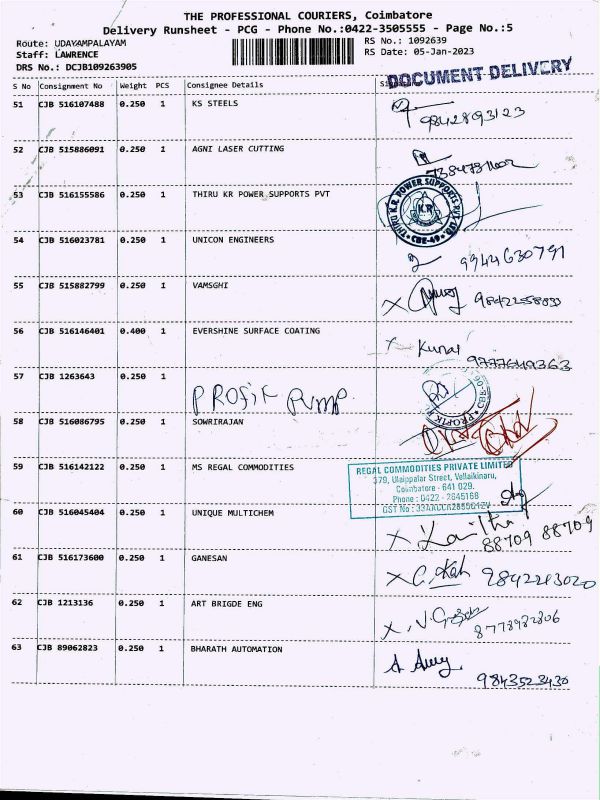 THE PROFESSIONAL COURIERS, Coimbatore
Delivery Runsheet - PCG - Phone No.:0422-3505555 - Page No.:5
Route: UDAYAMPALAYAM RS No.: 1092639
Staff: LAWRENCE RS Date: 05-Jan-2023
DRS No.: DCJB109263905
DOCUMENT DELIVERY
S No Consignment No Weight PCS Consignee Details
51 CJB 516107488 0.250 1 KS STEELS
9842893123
52 CJB 515886091 0.250 1 AGNI LASER CUTTING
53 CJB 516155586 0.250 1 THIRU KR POWER SUPPORTS PVT
THIRU K.R. POWER SUPPORTS PVT. LTD. K.R. CBE-49
54 CJB 516023781 0.250 1 UNICON ENGINEERS
9944630791
55 CJB 515882799 0.250 1 VAMSGHI
56 CJB 516146401 0.400 1 EVERSHINE SURFACE COATING
Kunal 9777649363
57 CJB 1263643 0.250 1
PROFIK PUMP
58 CJB 516086795 0.250 1 SOWRIRAJAN
59 CJB 516142122 0.250 1 MS REGAL COMMODITIES
REGAL COMMODITIES PRIVATE LIMITED
379, Ulaippalar Street, Vellaikinaru,
Coimbatore - 641 029.
Phone : 0422 - 2645168
GST No :
60 CJB 516045404 0.250 1 UNIQUE MULTICHEM
88709 88709
61 CJB 516173600 0.250 1 GANESAN
9842213020
62 CJB 1213136 0.250 1 ART BRIGDE ENG
8778982806
63 CJB 89062823 0.250 1 BHARATH AUTOMATION
9843523430